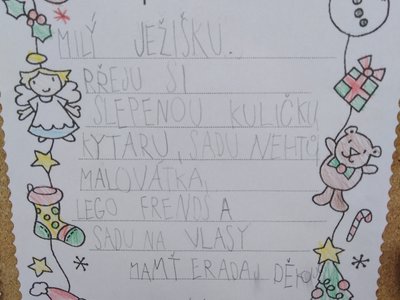 MILÝ JEŽIŠKU.
PŘEJU SI
SLEPENOU KULIČKU
KYTARU, SADU NEHTŮ
MALOVÁTKA,
LEGO FRENDS A
SADU NA VLASY